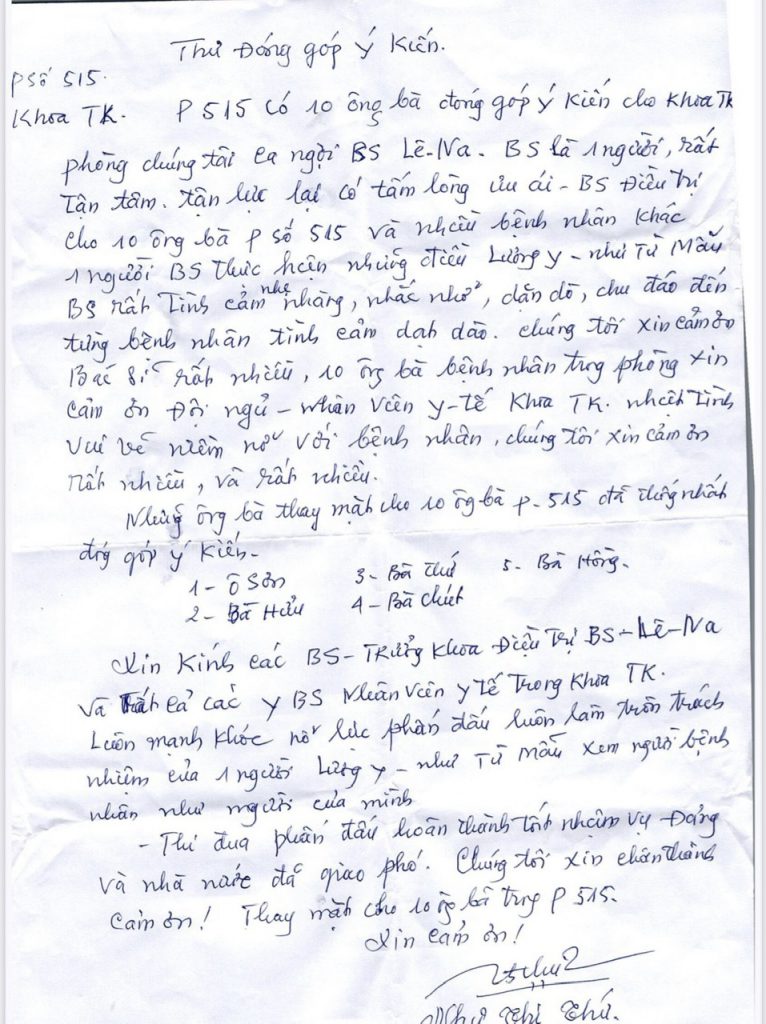 Thư Đóng góp Ý Kiến.
P Số 515.
Khoa TK. P 515 Có 10 ông bà đóng góp ý kiến cho Khoa TK
phòng chúng tôi ca ngợi BS Lê-Na. BS là 1 người, rất
Tận tâm. tận lực lại có tấm lòng ưu ái - BS Điều Trị
Cho 10 ông bà P Số 515 và nhiều bệnh nhân khác
1 người BS thực hiện những điều Lương y - như Từ Mẫu
BS rất Tình cảm nhẹ nhàng, nhắc nhở, dặn dò, chu đáo đến
từng bệnh nhân tình cảm dạt dào. chúng tôi xin cảm ơn
Bác Sĩ rất nhiều, 10 ôg bà bệnh nhân trog phòng xin
cảm ơn Đội ngủ - nhân viên y-tế Khoa TK. nhiệt Tình
vui vẻ niềm nở với bệnh nhân, chúng tôi xin cảm ơn
rất nhiều, và rất nhiều.
Những ôg bà thay mặt cho 10 ôg bà p-515 đã thống nhất
đóg góp ý kiến-
1- Ô Sơn 3- Bà Thứ 5- Bà Hồng.
2- Bà Hưu 4- Bà Chút
Xin Kính các BS - Trưởng Khoa Điều Trị BS-Lê-Na
và Tất cả các Y BS Nhân Viên y Tế Trong Khoa TK.
Luôn mạnh khỏe nổ lực phấn đấu luôn làm tròn trách
nhiệm của 1 người Lương y - như Từ Mẫu xem người bệnh
nhân như người của mình
- Thi đua phấn đấu hoàn thành tốt nhiệm vụ Đảng
và nhà nước đã giao phó. Chúng tôi xin chân thành
cảm ơn! Thay mặt cho 10 ôg bà trog P 515.
Xin cảm ơn!
Thị Thứ.